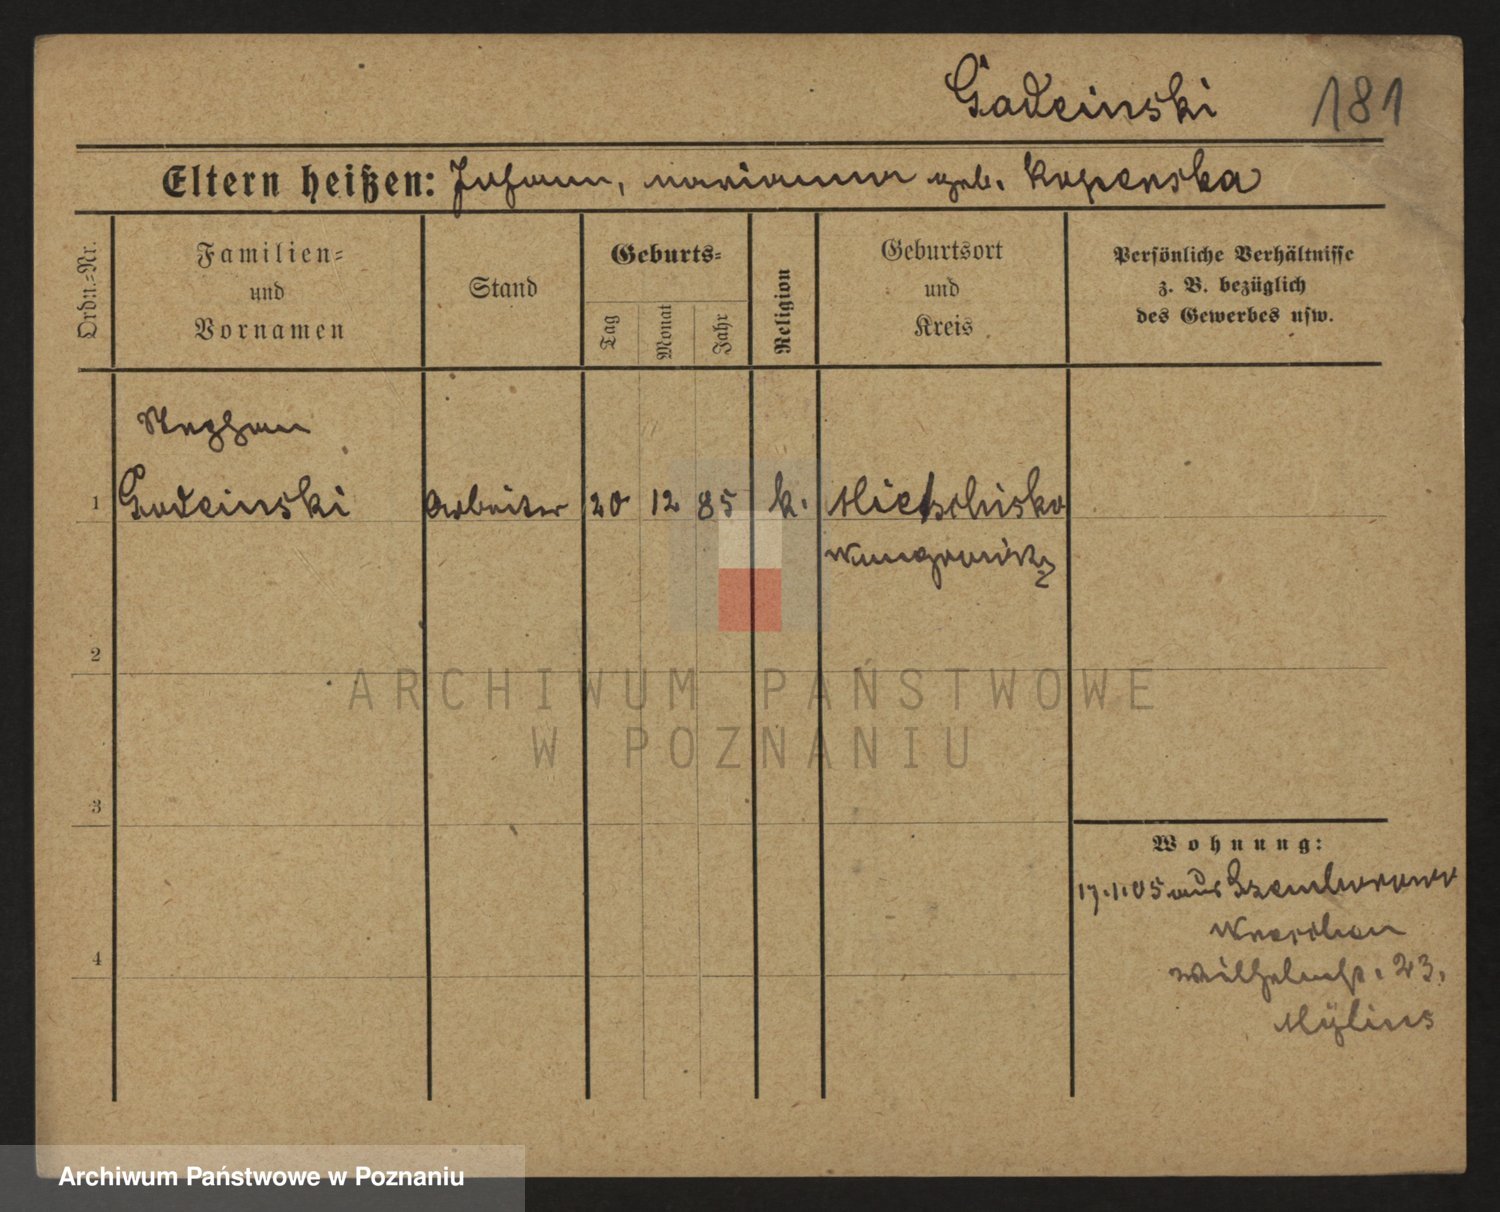 Gadeinski 181
Eltern heißen: Johann, Marianna geb. Koperska
Ordn.-Nr.
Familien-
und
Vornamen
Stand
Geburts-
Tag
Monat
Jahr
Religion
Geburtsort
und
Kreis
Persönliche Verhältnisse
z. B. bezüglich
des Gewerbes usw.
Stephan
1 Gadeinski Arbeiter 20 12 85 k. Mietschisko
Wongrowitz
2
3
4
Wohnung:
17.1.05 aus
Wreschen
Wilhelmstr. 23.
Mylius
ARCHIWUM PAŃSTWOWE
W POZNANIU
Archiwum Państwowe w Poznaniu